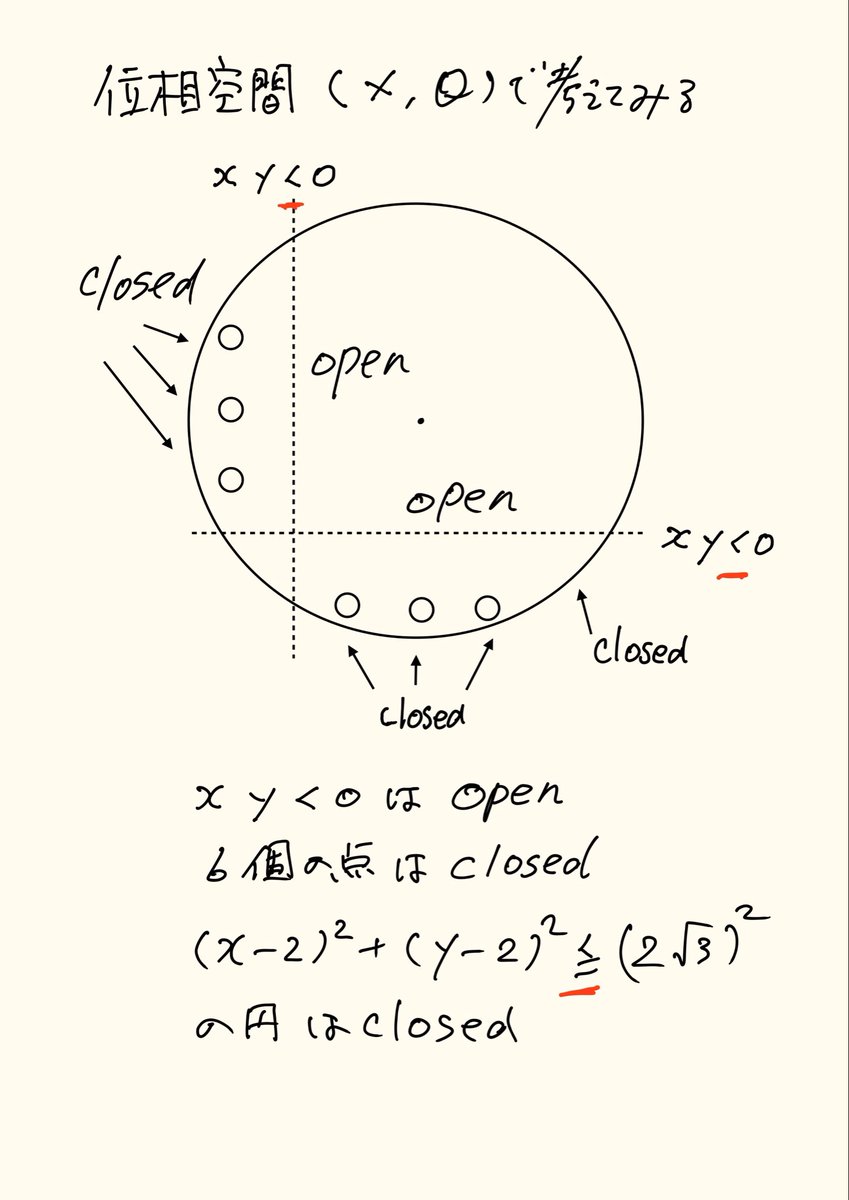 位相空間 (X, O)で考えてみる
x y < 0
closed
open
open
x y < 0
closed
closed
x y < 0 は open
6個の点は closed
(x-2)²+(y-2)²≦(2√3)²
の円は closed